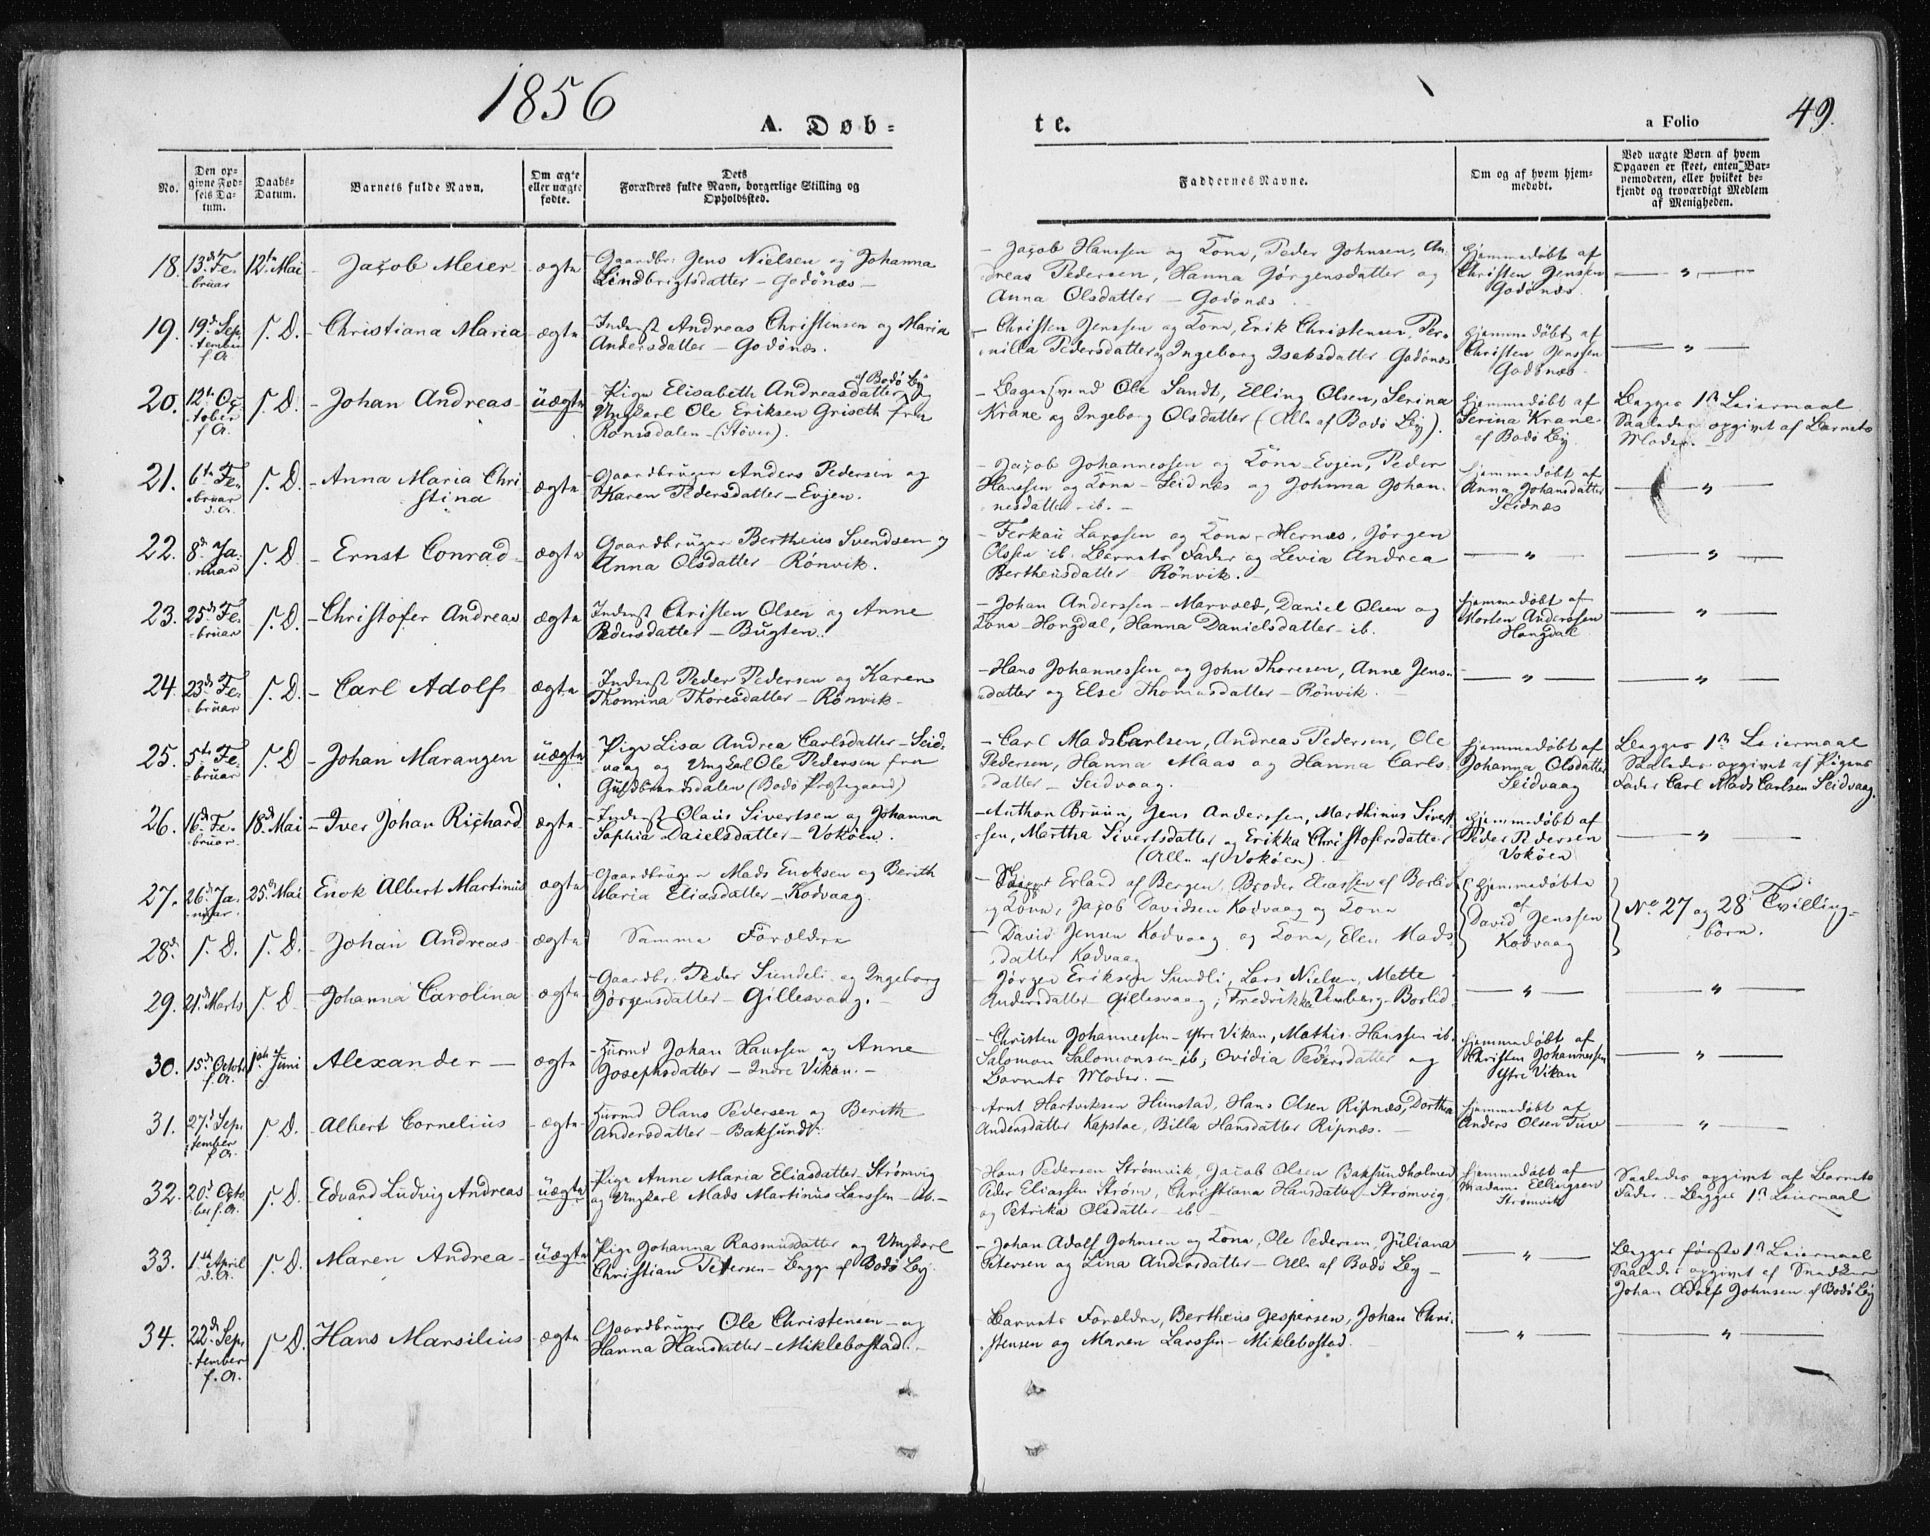 1856
A. Døb-
te.
a Folio
49.
No.
Den op-
givne Fød-
sels Da-
tum.
Daabs-
Datum.
Barnets fulde Navn.
Om ægte
eller uægte
fødte.
Dets
Forældres fulde Navn, borgerlige Stilling og
Opholdssted.
Faddernes Navne.
Om og af hvem hjem-
medøbt.
Ved uægte Børn af hvem
Opgaven er skeet, enten Bar-
nemoderen, eller hvilket be-
kjendt og troværdigt Medlem
af Menigheden.
18. 13de Fe-
bruar
12te Mai
Jacob Meier
ægte
Gaardbr: Jens Nielsen og Johanna
Lindbrigtsdatter - Godønæs -
Jacob Hanssen og Kone, Peder Johnsen, An-
dreas Pedersen, Hanna Jørgensdatter og
Anna Olsdatter - Godønæs.
Hjemmedøbt af
Christen Jenssen
Godønæs.
— " —
19. 19de Sep-
tember
f. A.
s. D.
Christiana Maria
ægte
Inderst Andreas Christensen og Maria
Andersdatter - Godønæs.
Christen Jenssen og Kone, Erik Christensen, Per-
nilla Pedersdatter og Ingeborg Isaksdatter Godønæs
Hjemmedøbt af
Christen Jenssen
Godønæs
— " —
20. 12te Oc-
tober
f. A.
s. D.
Johan Andreas
uægte
Pige Elisabeth Andreasdatter af Bodø By og
Ungkarl Ole Eriksen Griseth fra
Ronsdalen - (Støver).
Ole Sandt, Elling Olsen, Serina
Krane og Ingeborg Olsdatter (Alle af Bodø By).
Hjemmedøbt af
Serina Krane
af Bodø By.
Begges 1ste Leiermaal
Saaledes opgivet af Barnets
Moder.
21. 6te Fe-
bruar
d. A.
s. D.
Anna Maria Chri-
stina
ægte
Gaardbruger Anders Pedersen og
Karen Pedersdatter - Evjen.
Jacob Johannessen og Kone - Evjen, Peder
Hanssen og Kone - Seidnæs og Johnna Johan-
nesdatter - ib. -
Hjemmedøbt af
Anna Johansdatter
Seidnæs
— " —
22. 8de Ja-
nuar
s. D.
Ernst Conrad
ægte
Gaardbruger Bertheus Svendsen og
Anna Olsdatter - Rønvik.
Ferkau Larssen og Kone - Hernæs, Jørgen
Olssen ib. Barnets Fader og Levia Andrea
Bertheusdatter - Rønvik.
— " —
— " —
23. 25de Fe-
bruar
s. D.
Christofer Andreas
ægte
Inderst Christen Olsen og Anne
Pedersdatter - Bugten.
Johan Anderssen - Marvold, Daniel Olsen og
Kone - Hongdal, Hanna Danielsdatter - ib.
Hjemmedøbt af
Morten Anderssen
Hongdal
— " —
24. 23de Fe-
bruar
s. D.
Carl Adolf
ægte
Inderst Peder Pedersen og Karen
Thomina Thoresdatter - Rønvik.
Hans Johannessen og John Thoresen, Anne Jens-
datter og Else Thomasdatter - Rønvik.
— " —
— " —
25. 5te Fe-
bruar
s. D.
Johan Marangen
uægte
Pige Lisa Andrea Carlsdatter - Seid-
vaag og Ungkarl Ole Pedersen fra
Gulbrandsdalen (Bodø Præstegaard)
Carl Mads Carlsen, Andreas Pedersen, Ole
Pedersen, Hanna Maas og Hanna Carls-
datter - Seidvaag.
Hjemmedøbt af
Johanna Olsdatter
Seidvaag
Begges 1ste Leiermaal
Saaledes opgivet af Pigens
Fader Carl Mads Carlsen Seidvaag.
26. 16de Fe-
bruar.
18de Mai
Iver Johan Richard
ægte
Inderst Olaus Sivertsen og Johanna
Sophia Daielsdatter - Vokøen.
Anthon Bruun, Jens Anderssen, Marthinus Sivert-
sen, Martha Sivertsdatter og Erikka Christofersdatter
(Alle af Vokøen).
Hjemmedøbt af
Peder Pedersen
Vokøen
— " —
27. 26de Ja-
nuar.
25de Mai
Enok Albert Martinus
ægte
Gaardbruger Mads Enoksen og Berith
Maria Eliasdatter - Kodvaag.
Erland af Bergen, Broder Eliassen af Borlid
og Kone, Jacob Davidsen Kodvaag og Kone
Hjemmedøbte
af
David Jenssen
Kodvaag
No 27 og 28 Tvilling-
børn.
28de s. D.
s. D.
Johan Andreas
ægte
Samme Forældre
David Jensen Kodvaag og Kone, Elen Mads-
datter Kodvaag
29. 21de Marts
s. D.
Johanna Carolina
ægte
Gaardbr. Peder Sundeli og Ingeborg
Jørgensdatter - Gillesvaag.
Jørgen Eriksen Sundli, Lars Nielsen, Mette
Andersdatter - Gillesvaag, Fredrikke Umberg - Borlid
— " —
— " —
30. 15de Octob.
f. A.
1ste Juni
Alexander
ægte
Huusmd Johan Hanssen og Anne
Josephsdatter - Indre Vikan. -
Christen Johannessen - Ytre Vikan, Mathis Hanssen ib.
Salomon Salomonsen - ib, Ovidia Pedersdatter og
Barnets Moder. -
Hjemmedøbt af
Christen Johannessen
Ytre Vikan
— " —
31. 27de Sep-
tember
f. A.
s. D.
Albert Cornelius
ægte
Huusmd Hans Pedersen og Berith
Andersdatter - Baksundt.
Arnt Hartviksen Hunstad, Hans Olsen Ripnæs, Dorthea
Andersdatter Kapstoe, Billa Hansdatter Ripnæs.
Hjemmedøbt af
Anders Olsen Tuv
— " —
32. 20de Octo-
ber f. A.
s. D.
Edvard Ludvig Andreas
uægte
Pige Anne Maria Eliasdatter - Strømvig
og Ungkarl Mads Martinus Larssen - ib. -
Hans Pedersen Strømvik, Jacob Olsen Baksundholmen
Peder Eliassen Strøm, Christiana Hansdatter - Strømvig,
og Petrika Olsdatter - ib.
Hjemmedøbt af
Madame Ellingsen
Strømvik
Saaledes opgivet af Barnets
Fader - Begges 1ste Leiermaal
33. 1ste April
d. A.
s. D.
Maren Andrea
uægte
Pige Johanna Rasmusdatter og Ungkarl
Christian Petersen - Begge af Bodø By.
Johan Adolf Johnsen og Kone, Ole Pedersen, Juliana
Petersen og Lina Andersdatter - Alle af Bodø By -
— " —
Begges første 1ste Leiermaal
Saaledes opgivet af Snedker
Johan Adolf Johnsen af Bodø By
34. 22de Sep-
tember
f. A.
s. D.
Hans Marsilius
ægte
Gaardbruger Ole Christensen - og
Hanna Hansdatter - Miklebostad. -
Barnets Forældre, Bertheus Jespersen, Johan Chri-
stensen og Maren Larssen - Miklebostad.
— " —
— " —